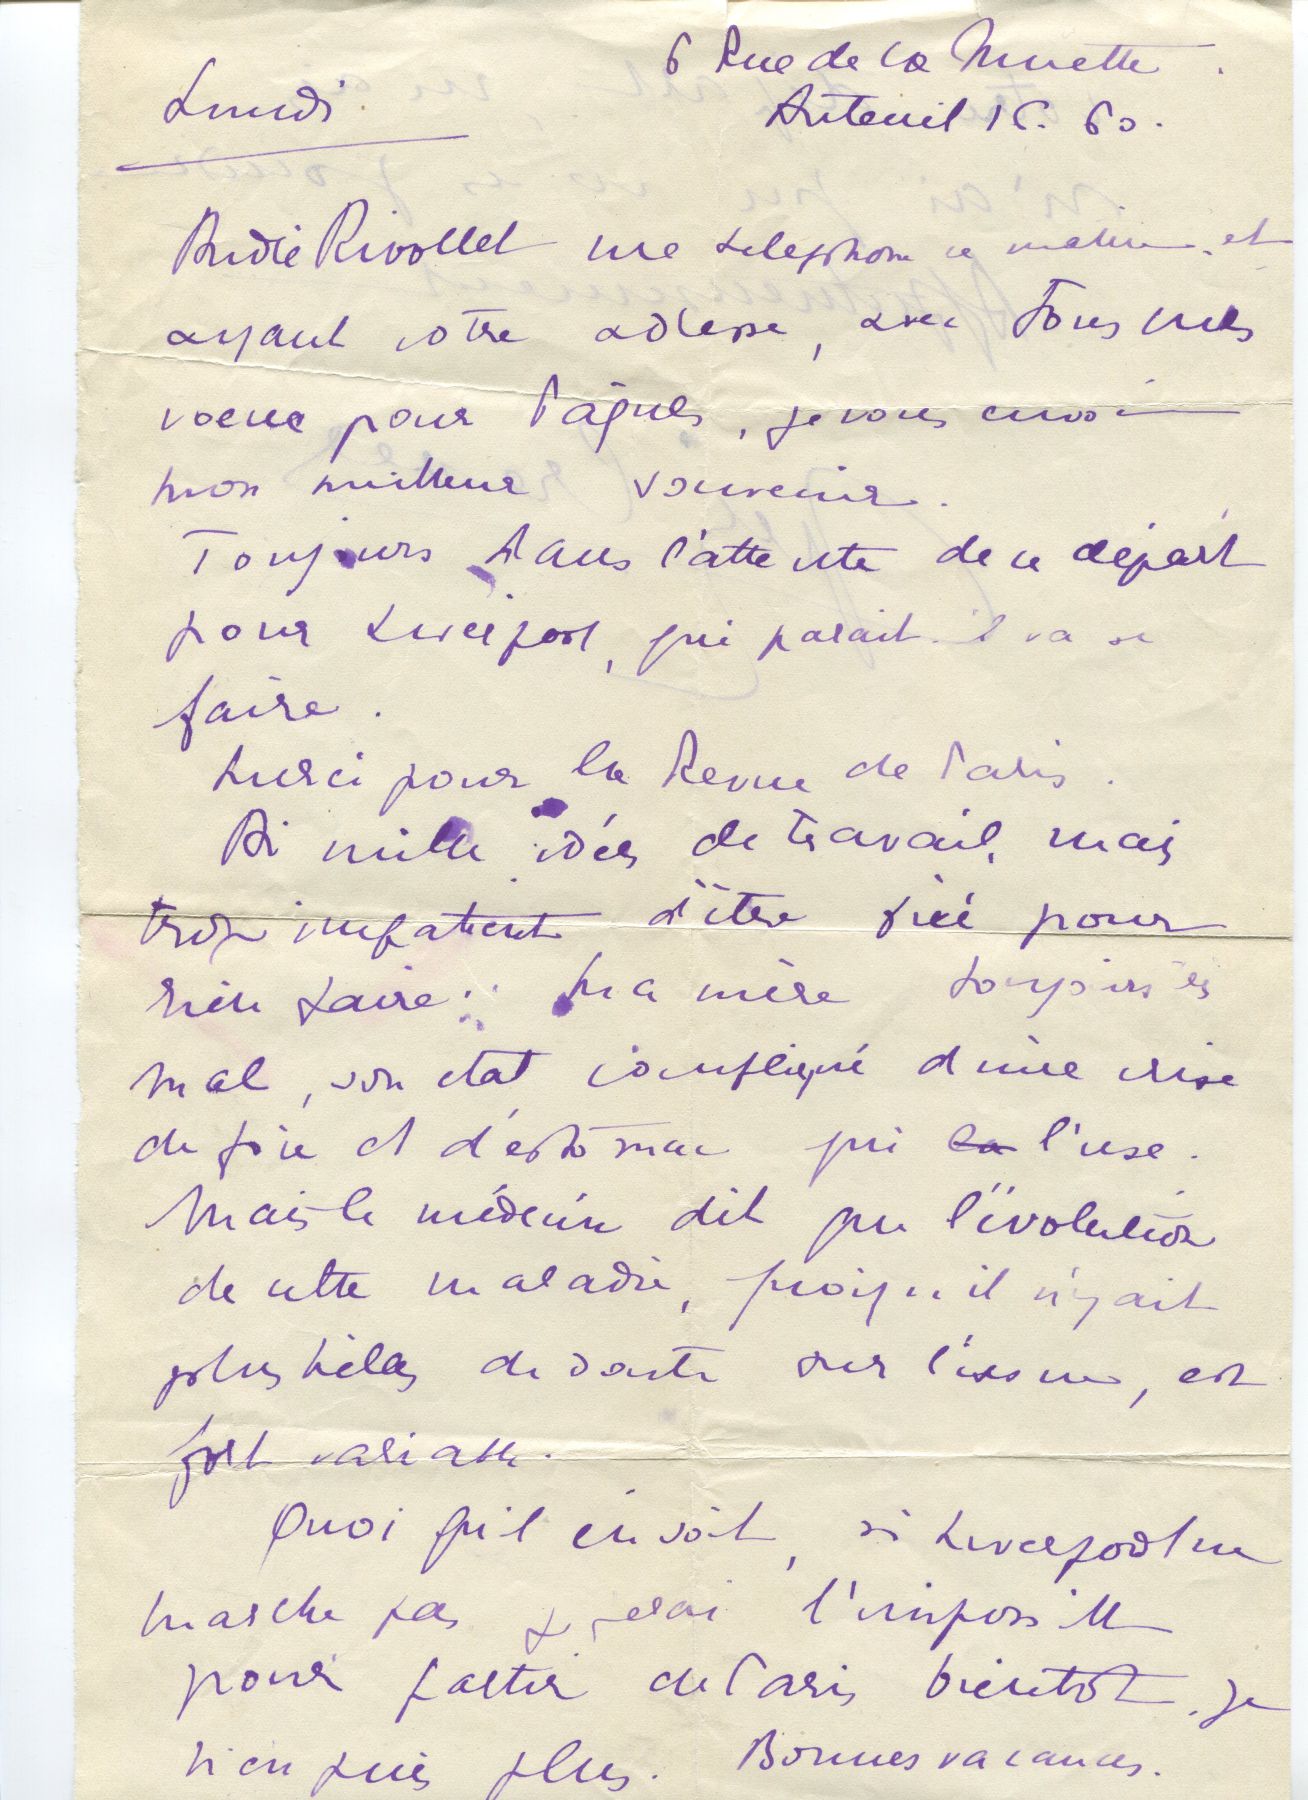 6 Rue de la Muette.
Lundi
Auteuil 16. 60.
André Rivollet me telephone ce matin, et
ayant votre adresse, avec Tous mes
voeux pour Pâques, je vous envoie
mon meilleur souvenir.
Toujours dans l'attente de ce départ
pour Liverpool, qui parait-il va se
faire.
Merci pour la Revue de Paris.
Ai mille idées de travail, mais
trop impatient d'être fixé pour
rien faire. Ma mère toujours très
mal, son état compliqué d'une crise
de foie et d'estomac qui la l'use.
Mais le médecin dit que l'évolution
de cette maladie, quoiqu'il n'y ait
plus hélas de doute sur l'issue, est
fort variable.
Quoi qu'il en soit, si Liverpool ne
marche pas je ferai l'impossible
pour partir de Paris bientôt, je
n'en puis plus. Bonnes vacances.